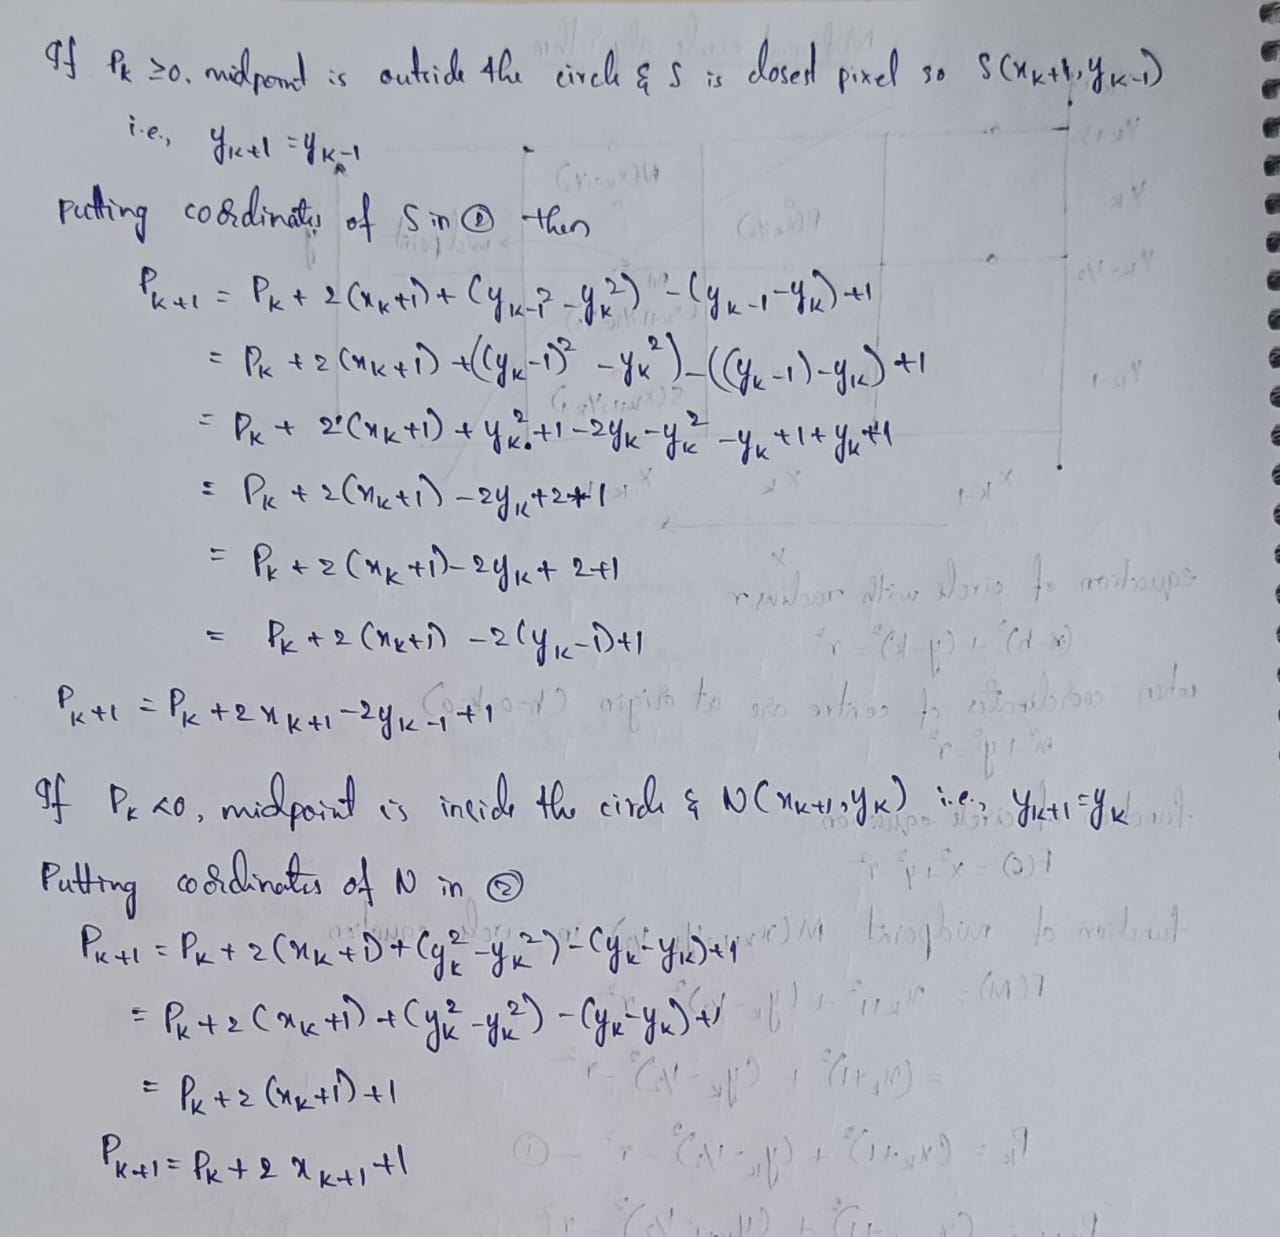 If Pk ≥0, midpoint is outside the circle & S is closest pixel so S(xk+1, yk-1)
i.e., yk+1 = yk-1
Putting coordinates of S in ② then
Pk+1 = Pk + 2(xk+1) + (yk-1² - yk²) - (yk-1 - yk) +1
= Pk + 2(xk+1) + ((yk-1)² - yk²) - ((yk-1) - yk) +1
= Pk + 2(xk+1) + yk² +1 -2yk - yk² - yk +1 + yk +1
= Pk + 2(xk+1) - 2yk +2+1
= Pk + 2(xk+1) - 2yk + 2+1
= Pk + 2(xk+1) - 2(yk-1)+1
Pk+1 = Pk + 2xk+1 - 2yk-1 +1
If Pk <0, midpoint is inside the circle & N(xk+1, yk) i.e., yk+1 = yk
Putting coordinates of N in ②
Pk+1 = Pk + 2(xk+1) + (yk² - yk²) - (yk - yk) +1
= Pk + 2(xk+1) + (yk² - yk²) - (yk - yk) +1
= Pk + 2(xk+1) +1
Pk+1 = Pk + 2xk+1 +1